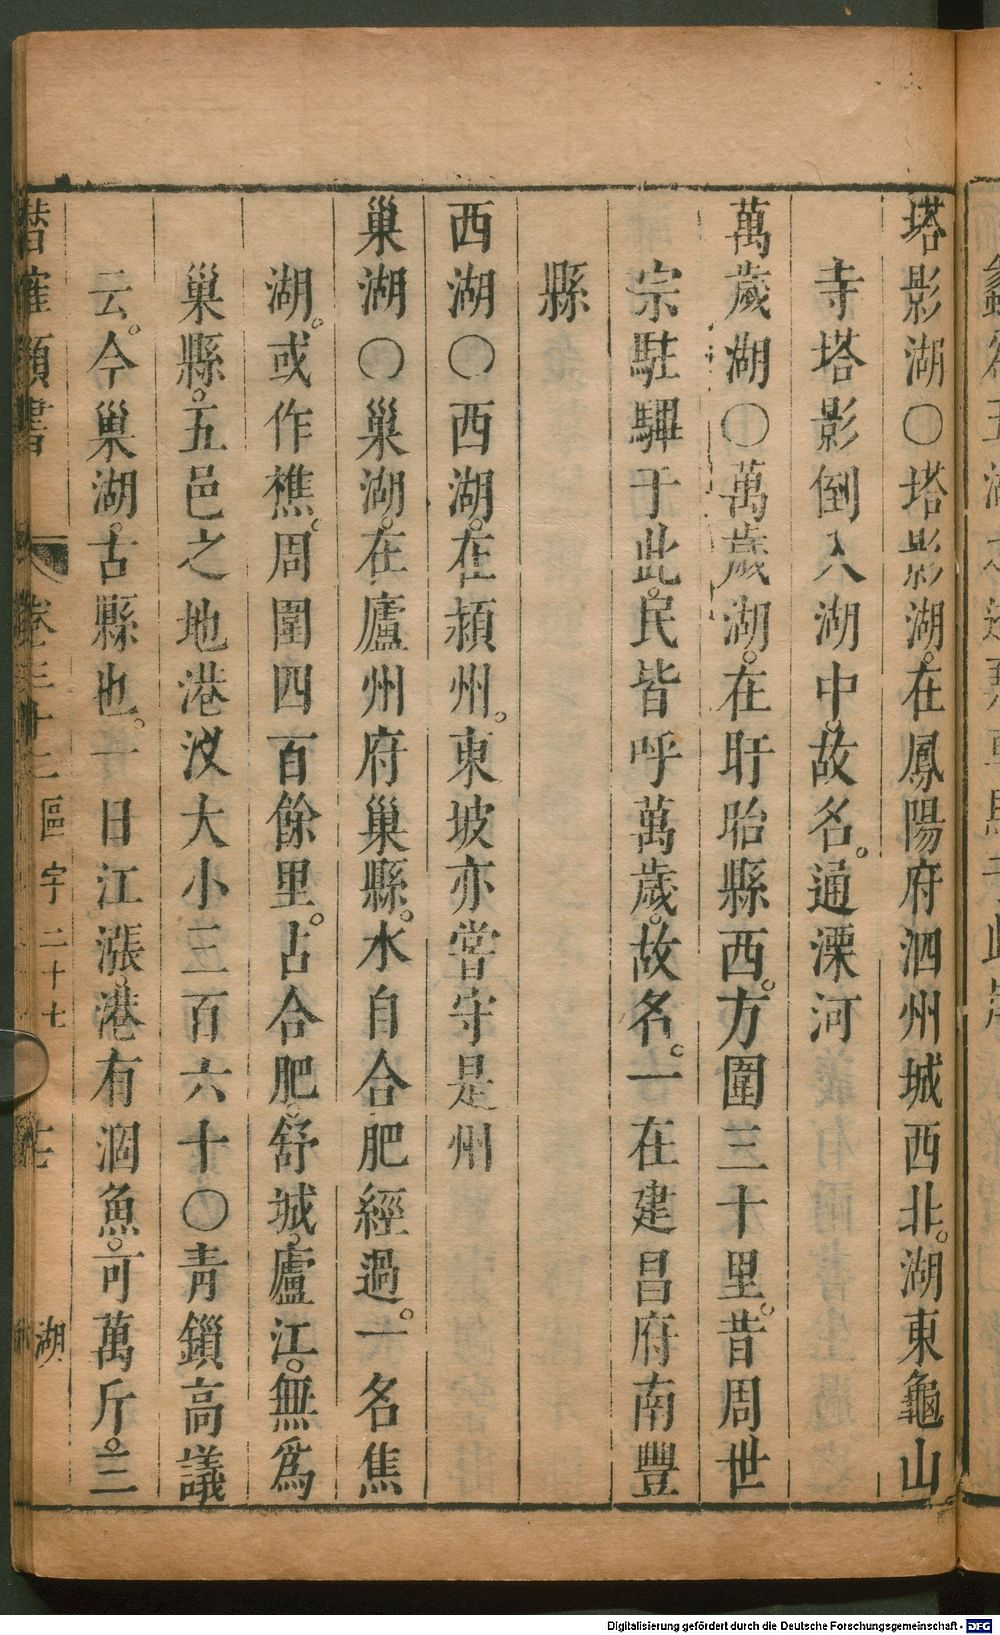 塔影湖〇塔影湖。在鳳陽府泗州城西北。湖東龜山
寺塔影倒入湖中。故名。通溧河
萬歲湖〇萬歲湖。在盱眙縣西。方圍三十里。昔周世
宗駐驆于此。民皆呼萬歲。故名。一在建昌府南豐
縣
西湖〇西湖。在潁州。東坡亦嘗守是州
巢湖〇巢湖。在廬州府巢縣。水自合肥經過。一名焦
湖。或作樵。周圍四百餘里。占合肥。舒城。廬江。無爲
巢縣。五邑之地港汊大小三百六十〇青鎖高議
云。今巢湖。古縣也。一日江漲。港有涸魚。可萬斤。三
區字二十七
湖
Digitalisierung gefördert durch die Deutsche Forschungsgemeinschaft - DFG